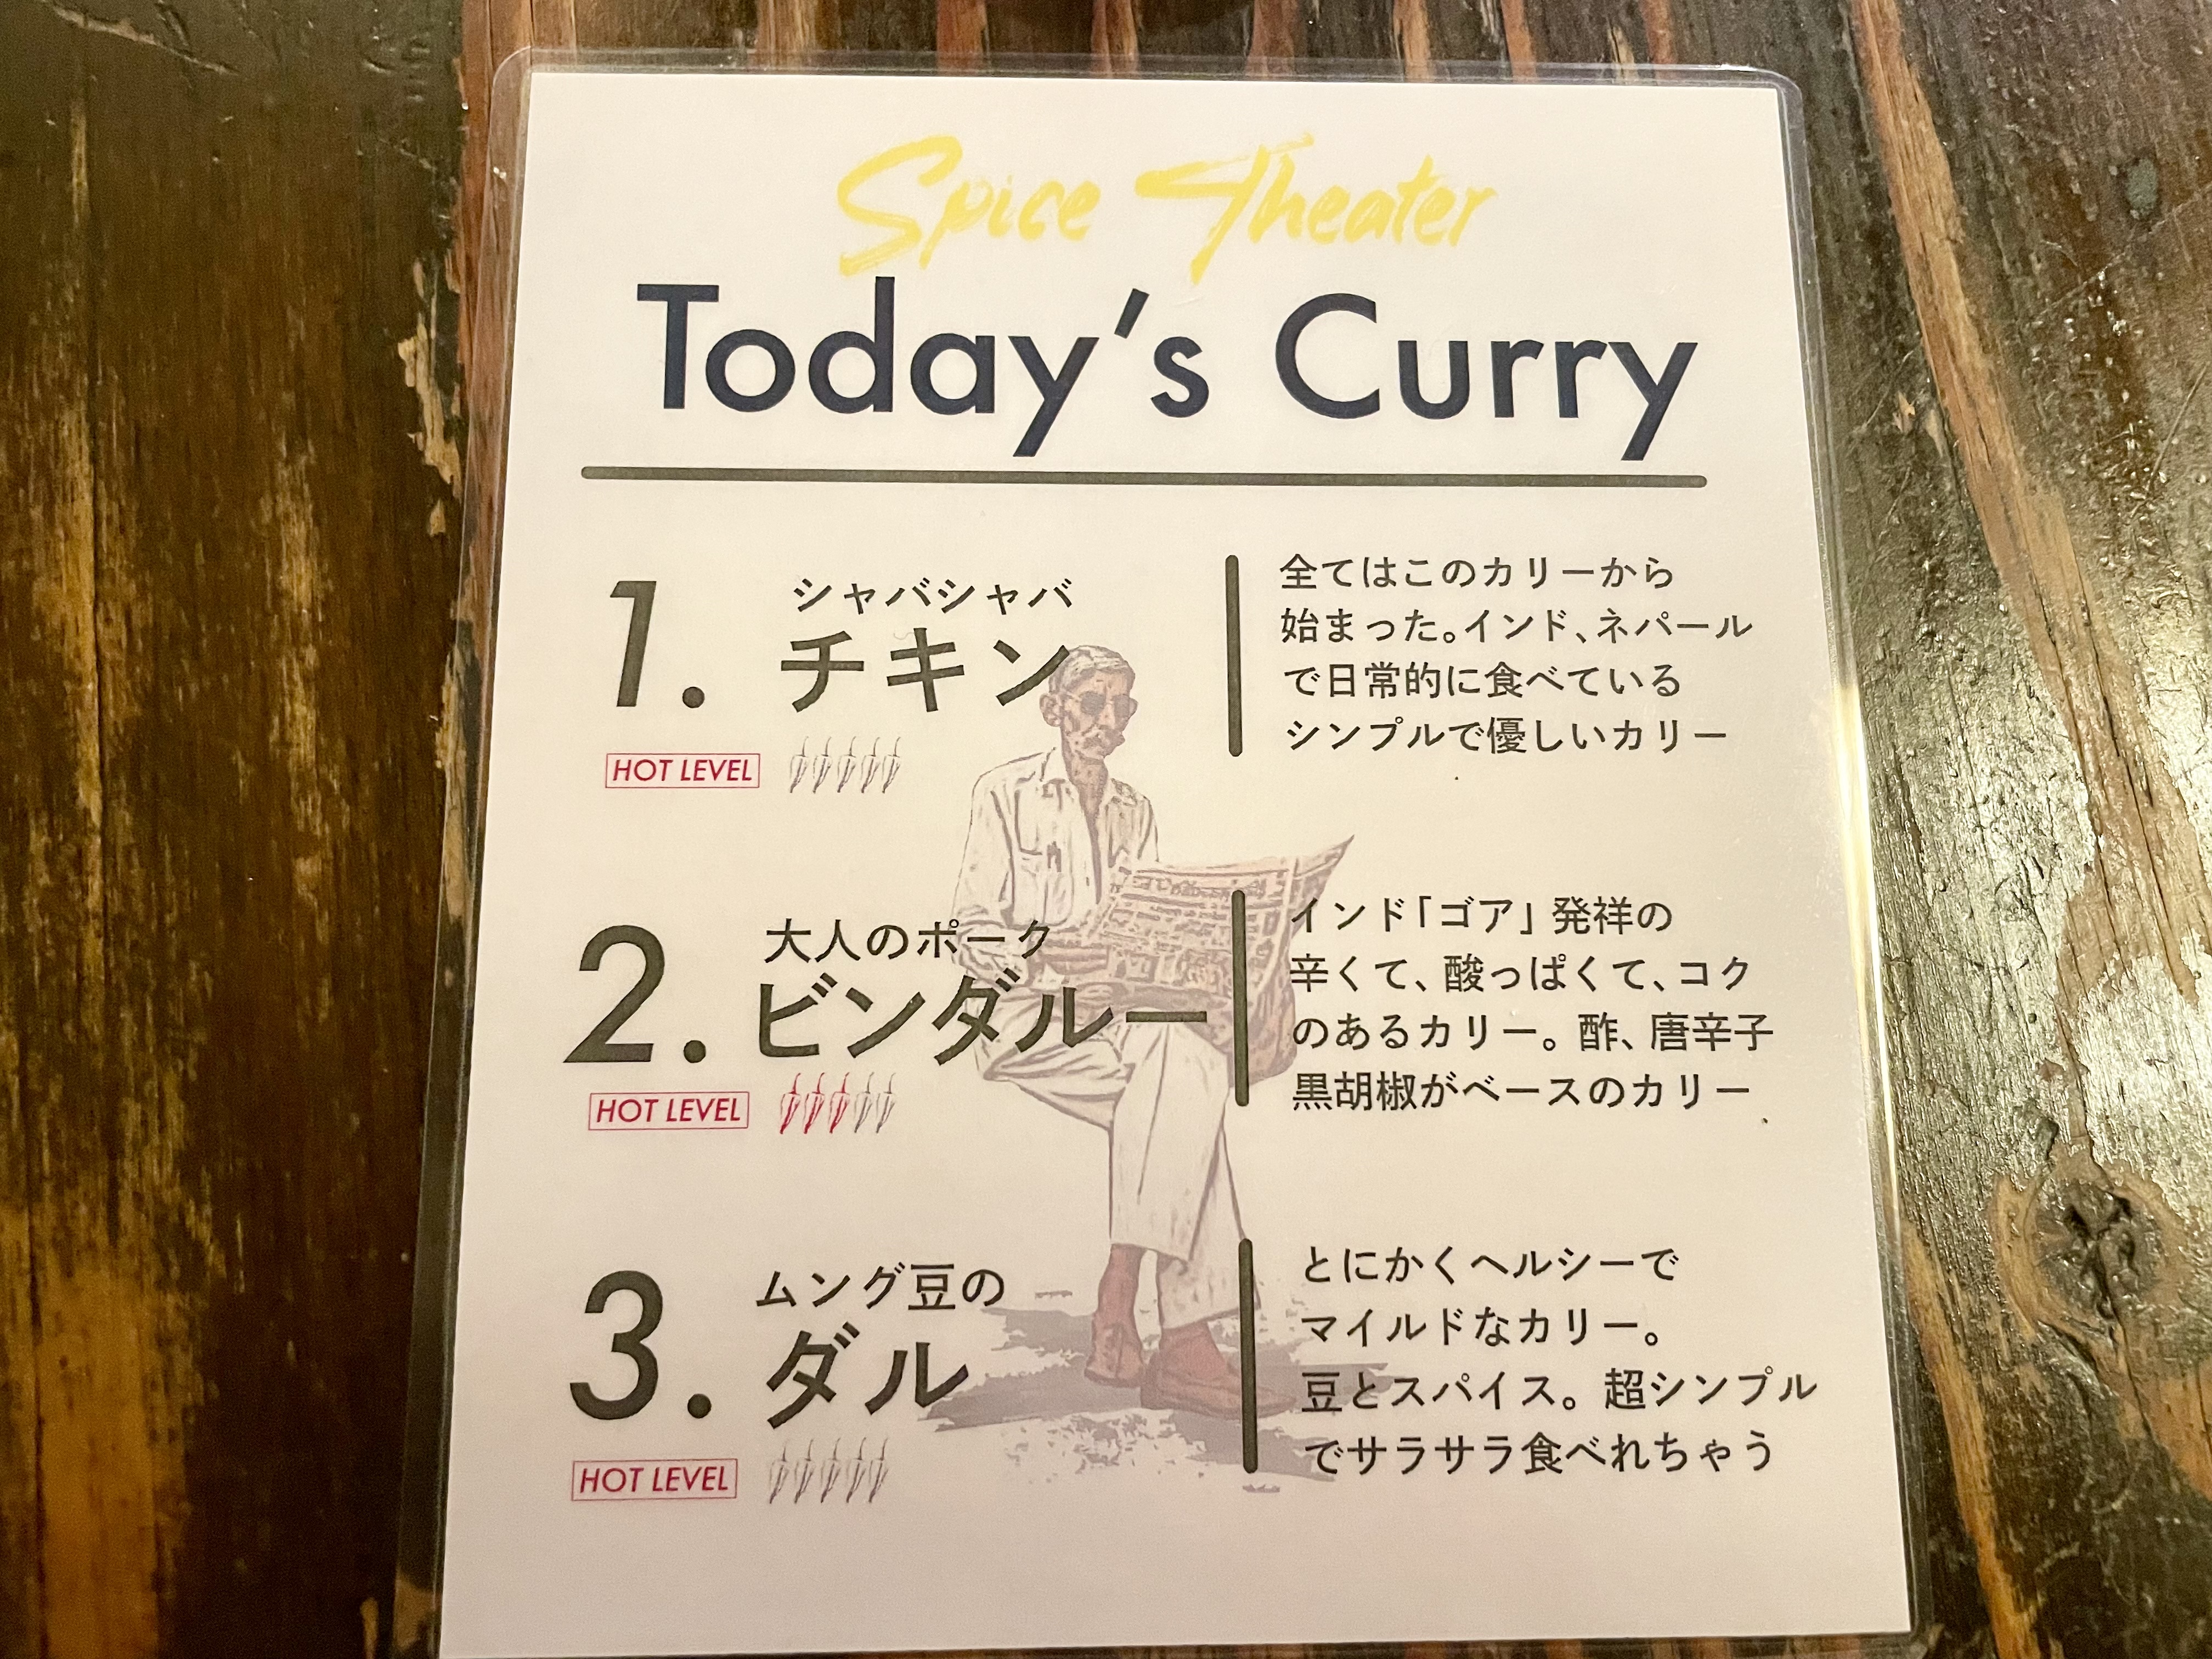 Spice Theater
Today's Curry
1. シャバシャバ
チキン
HOT LEVEL
全てはこのカリーから
始まった。インド、ネパール
で日常的に食べている
シンプルで優しいカリー
2. 大人のポーク
ビンダルー
HOT LEVEL
インド「ゴア」発祥の
辛くて、酸っぱくて、コク
のあるカリー。酢、唐辛子
黒胡椒がベースのカリー
3. ムング豆の
ダル
HOT LEVEL
とにかくヘルシーで
マイルドなカリー。
豆とスパイス。超シンプル
でサラサラ食べれちゃう